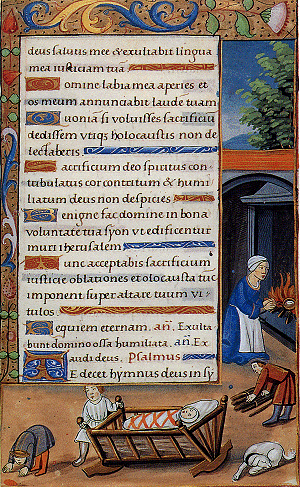 deus salutis mee & exultabit lingua
mea iusticiam tuā
Domine labia mea aperies et
os meum annunciabit laudē tuam
Quonia si voluisses sacrificiū
dedissem vtiqȝ holocaustis non de
lectaberis.
Sacrificium deo spiritus con
tribulatus cor contritum & humi
liatum deus non despicies
Benigne fac domine in bona
voluntate tua syon vt edificentur
muri iherusalem
Tunc acceptabis sacrificium
iusticie oblationes et olocausta tūc
imponent super altare tuum vi
tulos
Requiem eternam. añ. Exulta
bunt domino ossa humiliata. añ. Ex
audi deus. Psalmus
Te decet hymnus deus in sy